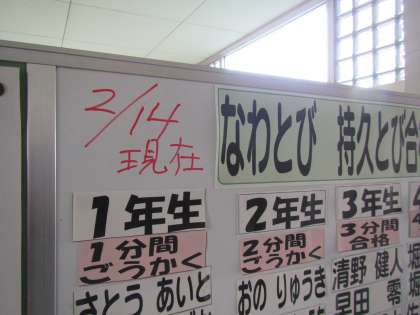 2/14
現在
なわとび 持久とび合
1年生
1分間
ごうかく
さとう あいと
2年生
2分間
ごうかく
おの りゅうき
3年生
3分間
合格
清野 健人
早田 零